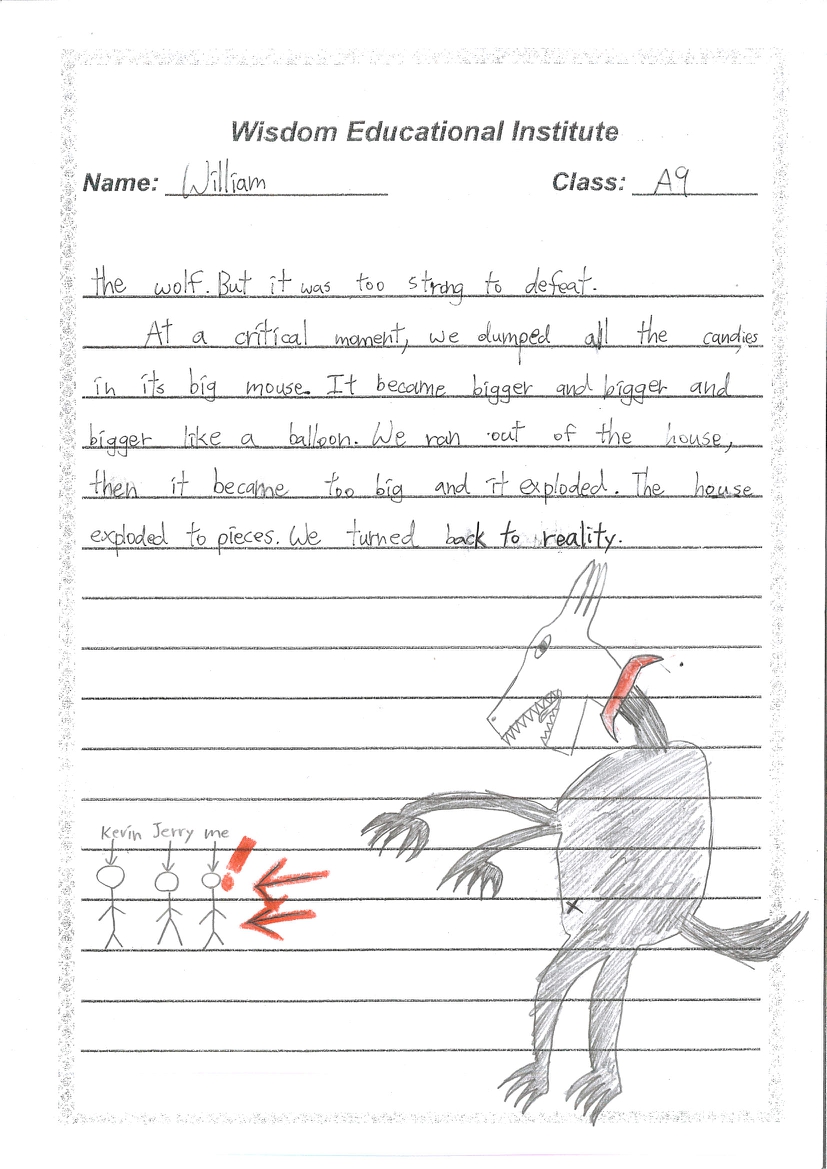 Wisdom Educational Institute
Name: William Class: A9
the wolf. But it was too strong to defeat.
At a critical moment, we dumped all the candies
in its big mouse. It became bigger and bigger and
bigger like a balloon. We ran out of the house,
then it became too big and it exploded. The house
exploded to pieces. We turned back to reality.
Kevin Jerry me